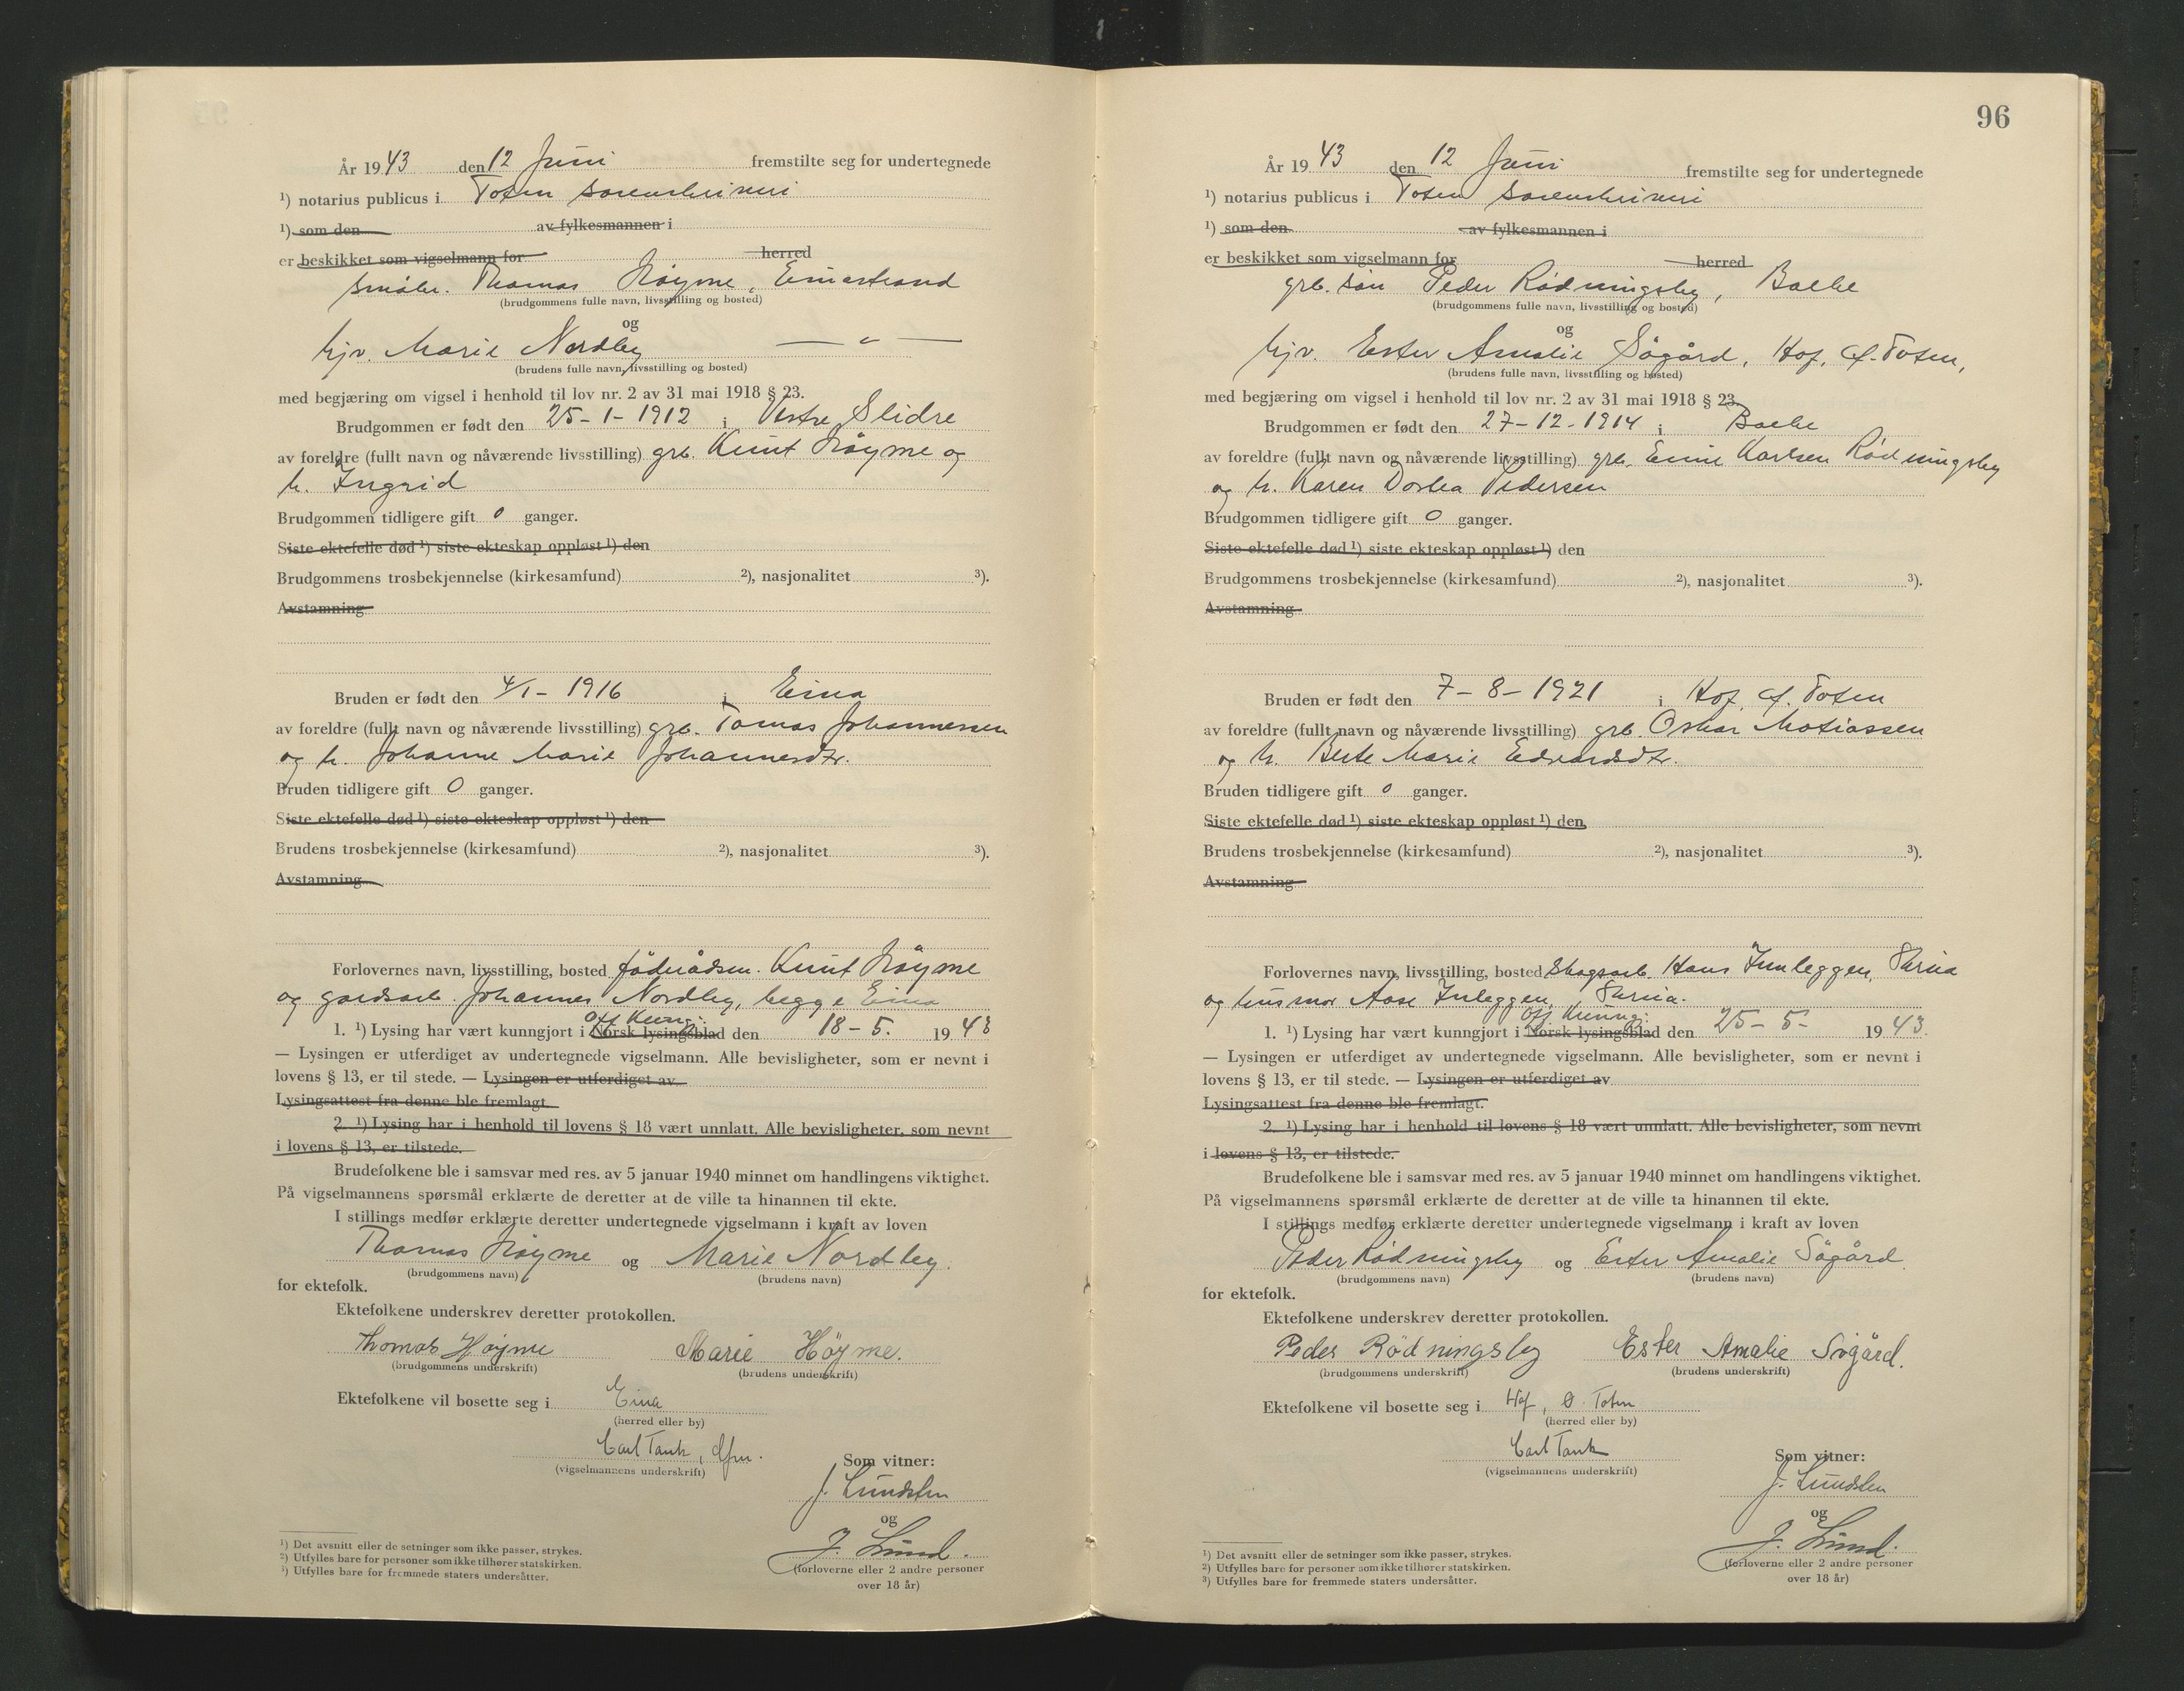 År 1943 den 12 Juni fremstilte seg for undertegnede
¹) notarius publicus i Toten sorenskriveri
¹) som den av fylkesmannen i
er beskikket som vigselmann for herred
småbr. Thomas Høyme, Einastrand
(brudgommens fulle navn, livsstilling og bosted)
og
hjv. Marie Nordby — " —
(brudens fulle navn, livsstilling og bosted)
med begjæring om vigsel i henhold til lov nr. 2 av 31 mai 1918 § 23.
Brudgommen er født den 25-1-1912 i Vestre Slidre
av foreldre (fullt navn og nåværende livsstilling) grb. Knut Høyme og
h. Ingrid
Brudgommen tidligere gift 0 ganger.
Siste ektefelle død ¹) siste ekteskap oppløst ¹) den
Brudgommens trosbekjennelse (kirkesamfund) ²), nasjonalitet ³).
Avstamning
Bruden er født den 4/1-1916 i Eina
av foreldre (fullt navn og nåværende livsstilling) grb. Tomas Johannessen
og h. Johanne Marie Johannesdtr.
Bruden tidligere gift 0 ganger.
Siste ektefelle død ¹) siste ekteskap oppløst ¹) den
Brudens trosbekjennelse (kirkesamfund) ²), nasjonalitet ³).
Avstamning
Forlovernes navn, livsstilling, bosted föderådsm. Knut Høyme
og gardsarb. Johannes Nordby, begge Eina
Off. Kunngj.
1. ¹) Lysing har vært kunngjort i Norsk lysingsblad den 18-5. 1943
— Lysingen er utferdiget av undertegnede vigselmann. Alle bevisligheter, som er nevnt i
lovens § 13, er til stede. — Lysingen er utferdiget av
Lysingsattest fra denne ble fremlagt
2. ¹) Lysing har i henhold til lovens § 18 vært unnlatt. Alle bevisligheter, som nevnt
i lovens § 13, er tilstede.
Brudefolkene ble i samsvar med res. av 5 januar 1940 minnet om handlingens viktighet.
På vigselmannens spørsmål erklærte de deretter at de ville ta hinannen til ekte.
I stillings medfør erklærte deretter undertegnede vigselmann i kraft av loven
Thomas Høyme og Marie Nordby.
(brudgommens navn) (brudens navn)
for ektefolk.
Ektefolkene underskrev deretter protokollen.
Thomas Høyme Marie Höyme.
(brudgommens underskrift) (brudens underskrift)
Ektefolkene vil bosette seg i Eina
(herred eller by)
Carl Tank,
(vigselmannens underskrift)
Som vitner:
J. Lundsten
og
J. Lund.
(forloverne eller 2 andre personer
over 18 år)
¹) Det avsnitt eller de setninger som ikke passer, strykes.
²) Utfylles bare for personer som ikke tilhører statskirken.
³) Utfylles bare for fremmede staters undersåtter.
96
År 1943 den 12 Juni fremstilte seg for undertegnede
¹) notarius publicus i Toten sorenskriveri
¹) som den av fylkesmannen i
er beskikket som vigselmann for herred
grb. sön Peder Rødningsby, Balke
(brudgommens fulle navn, livsstilling og bosted)
og
hjv. Ester Amalie Sögård, Hof, Ø. Toten,
(brudens fulle navn, livsstilling og bosted)
med begjæring om vigsel i henhold til lov nr. 2 av 31 mai 1918 § 23.
Brudgommen er født den 27-12-1914 i Balke
av foreldre (fullt navn og nåværende livsstilling) grb. Emil Karlsen Rødningsby
og h. Karen Dortea Pedersen
Brudgommen tidligere gift 0 ganger.
Siste ektefelle død ¹) siste ekteskap oppløst ¹) den
Brudgommens trosbekjennelse (kirkesamfund) ²), nasjonalitet ³).
Avstamning
Bruden er født den 7-8-1921 i Hof, Ø. Toten
av foreldre (fullt navn og nåværende livsstilling) grb. Oskar Matiassen
og h. Berte Marie Edvardsdtr.
Bruden tidligere gift 0 ganger.
Siste ektefelle død ¹) siste ekteskap oppløst ¹) den
Brudens trosbekjennelse (kirkesamfund) ²), nasjonalitet ³).
Avstamning
Forlovernes navn, livsstilling, bosted Skogsarb. Hans Innleggen, Skreia
og husmor Aase Inleggen, Skreia.
Off. Kunngj.
1. ¹) Lysing har vært kunngjort i Norsk lysingsblad den 25-5- 1943.
— Lysingen er utferdiget av undertegnede vigselmann. Alle bevisligheter, som er nevnt i
lovens § 13, er til stede. — Lysingen er utferdiget av
Lysingsattest fra denne ble fremlagt.
2. ¹) Lysing har i henhold til lovens § 18 vært unnlatt. Alle bevisligheter, som nevnt
i lovens § 13, er tilstede.
Brudefolkene ble i samsvar med res. av 5 januar 1940 minnet om handlingens viktighet.
På vigselmannens spørsmål erklærte de deretter at de ville ta hinannen til ekte.
I stillings medfør erklærte deretter undertegnede vigselmann i kraft av loven
Peder Rødningsby og Ester Amalie Sögård.
(brudgommens navn) (brudens navn)
for ektefolk.
Ektefolkene underskrev deretter protokollen.
Peder Rödningsby Ester Amalie Sögård.
(brudgommens underskrift) (brudens underskrift)
Ektefolkene vil bosette seg i Hof, Ø. Toten
(herred eller by)
Carl Tank
(vigselmannens underskrift)
Som vitner:
J. Lundsten
og
J. Lund.
(forloverne eller 2 andre personer
over 18 år)
¹) Det avsnitt eller de setninger som ikke passer, strykes.
²) Utfylles bare for personer som ikke tilhører statskirken.
³) Utfylles bare for fremmede staters undersåtter.